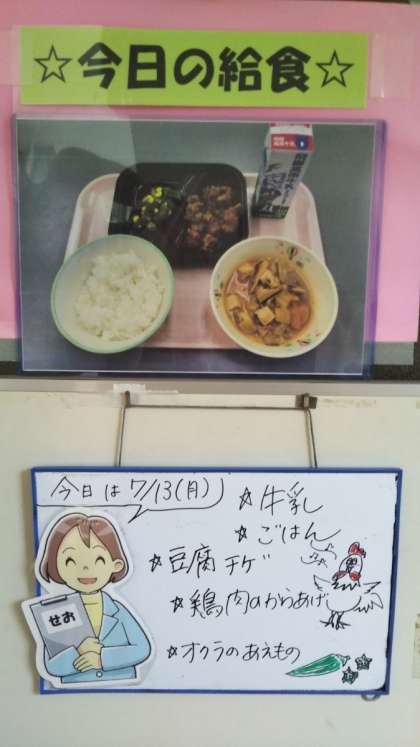 ☆今日の給食☆
今日は7/13(月)
☆牛乳
☆ごはん
☆豆腐チゲ
☆鶏肉のからあげ
☆オクラのあえもの
せお